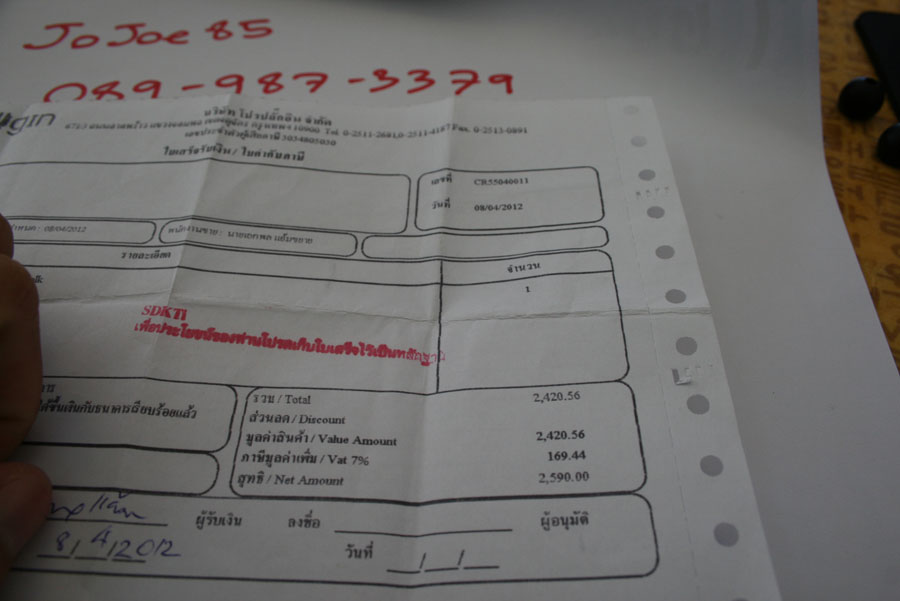 JoJoe 85
089-987-3379
gin
บริษัท โปรปลั๊กอิน จำกัด
10900 Tel 0-2511-2681,0-2511-4187 Fax. 0-2513-0891
เลขประจำตัวผู้เสียภาษี 3034805030
ใบเสร็จรับเงิน / ใบกำกับภาษี
เลขที่ CR55040011
วันที่ 08/04/2012
08/04/2012
พนักงานขาย : นายเอกพล
รายละเอียด
จำนวน
1
SDKTI
เพื่อประโยชน์ของท่านโปรดเก็บใบเสร็จไว้เป็นหลักฐาน
การ
ได้ขึ้นเงินกับธนาคารเรียบร้อยแล้ว
รวม / Total 2,420.56
ส่วนลด / Discount
มูลค่าสินค้า / Value Amount 2,420.56
ภาษีมูลค่าเพิ่ม / Vat 7% 169.44
สุทธิ / Net Amount 2,590.00
ผู้รับเงิน ลงชื่อ ผู้อนุมัติ
8/4/2012 วันที่ _/_/_